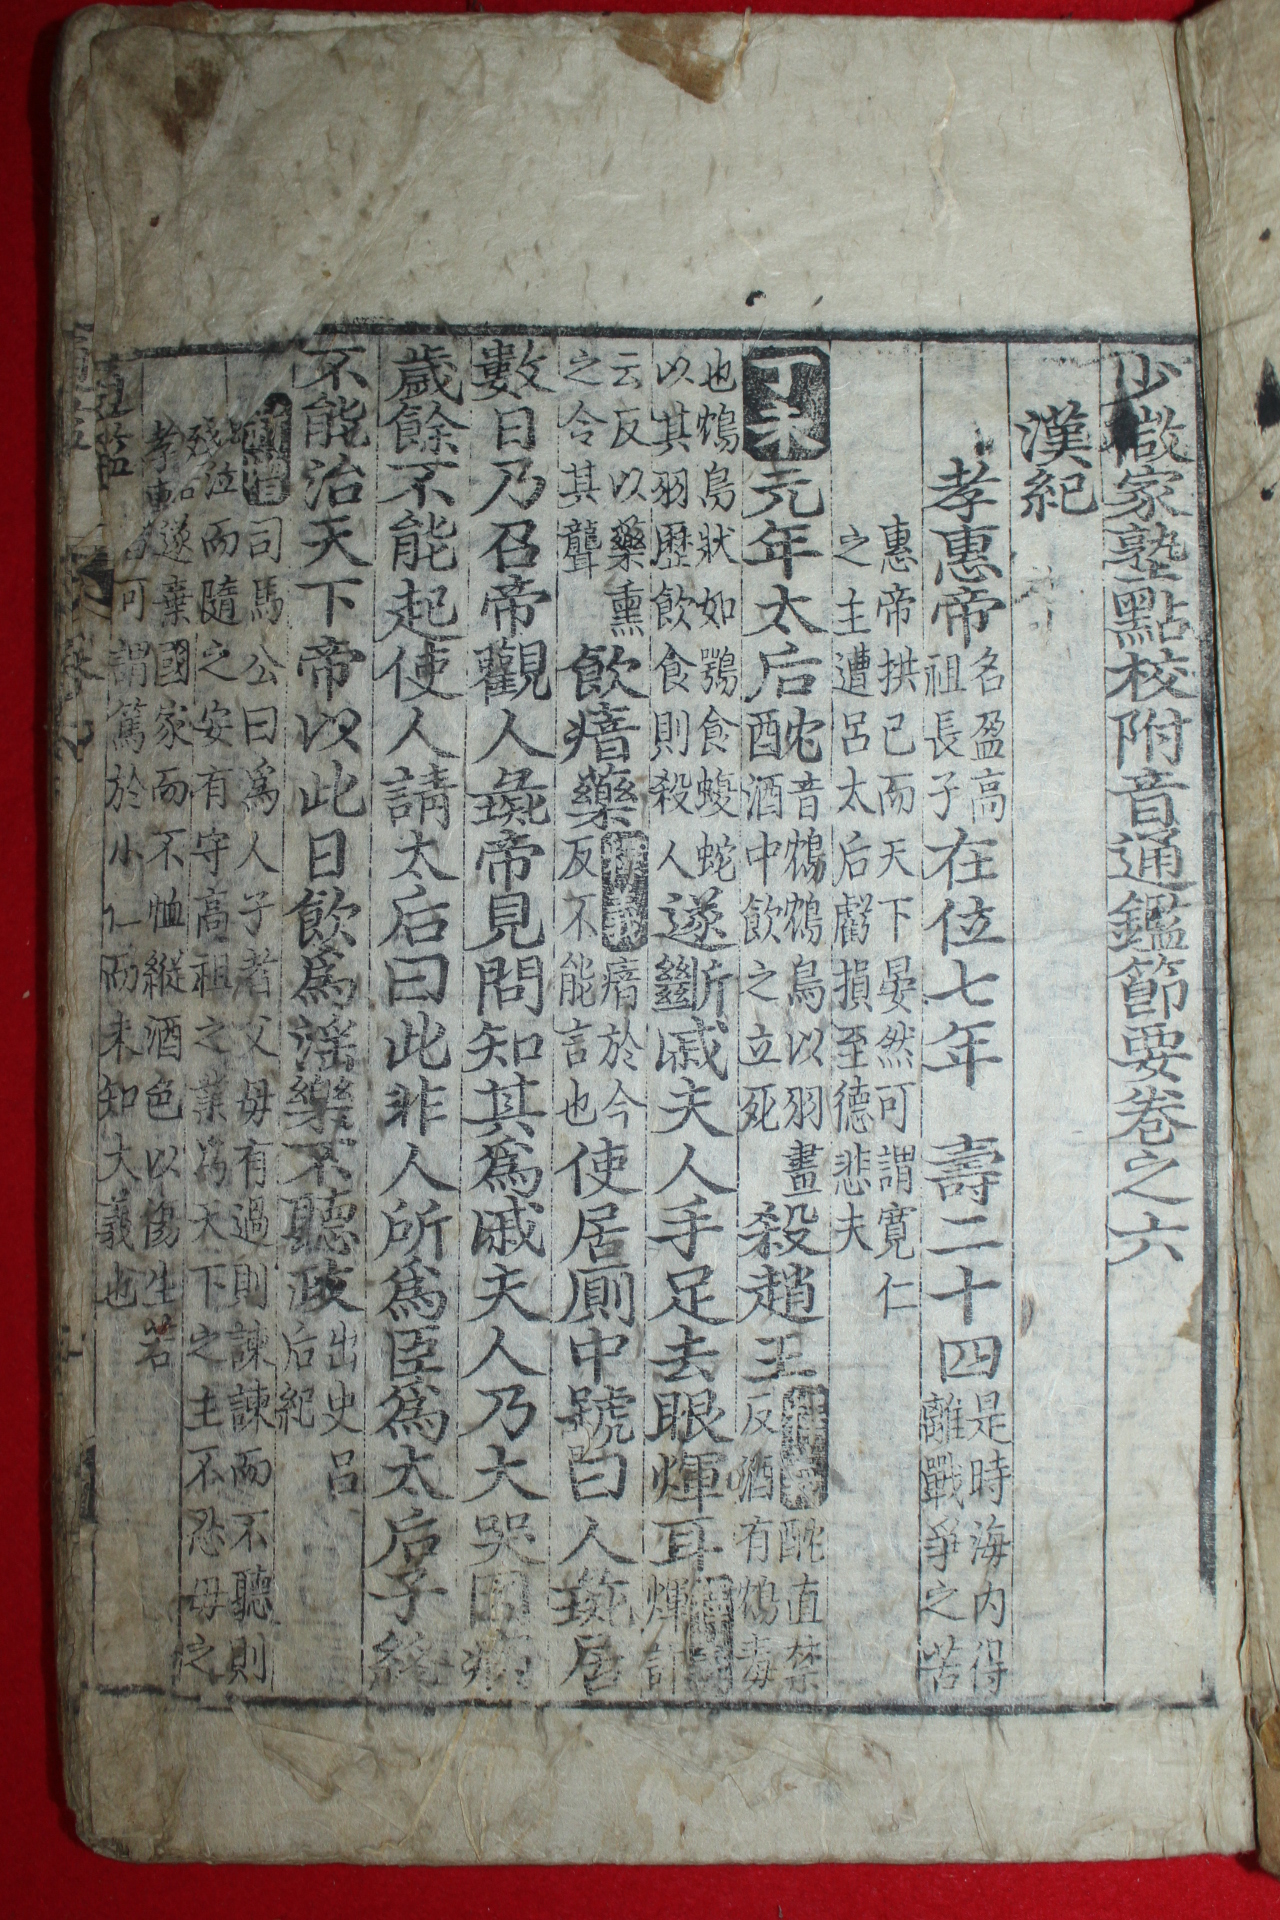 少微家塾點校附音通鑑節要卷之六
漢紀
孝惠帝名盈高祖長子在位七年 壽二十四是時海内得離戰爭之苦
惠帝拱己而天下晏然可謂寬仁之主遭呂太后虧損至德悲夫
丁未元年太后酖音鴆鴆鳥以羽畫酒中飲之立死殺趙王酖直禁反酒有鴆毒
也鴆鳥狀如鶚食蝮蛇以其羽歷飲食則殺人遂斷戚夫人手足去眼煇耳煇許
云反以藥熏之令其聾飲瘖藥瘖於今反不能言也使居厠中號曰人彘居
數日乃召帝觀人彘帝見問知其爲戚夫人乃大哭因病
歲餘不能起使人請太后曰此非人所爲臣爲太后子終
不能治天下帝以此日飮爲淫樂不聽政出史呂后紀
司馬公曰爲人子者父母有過則諫諫而不聽則
泣而隨之安有守高祖之業爲天下之主不忍母之
殘遂棄國家而不恤縱酒色以傷生若
孝惠者可謂篤於小仁而未知大義也